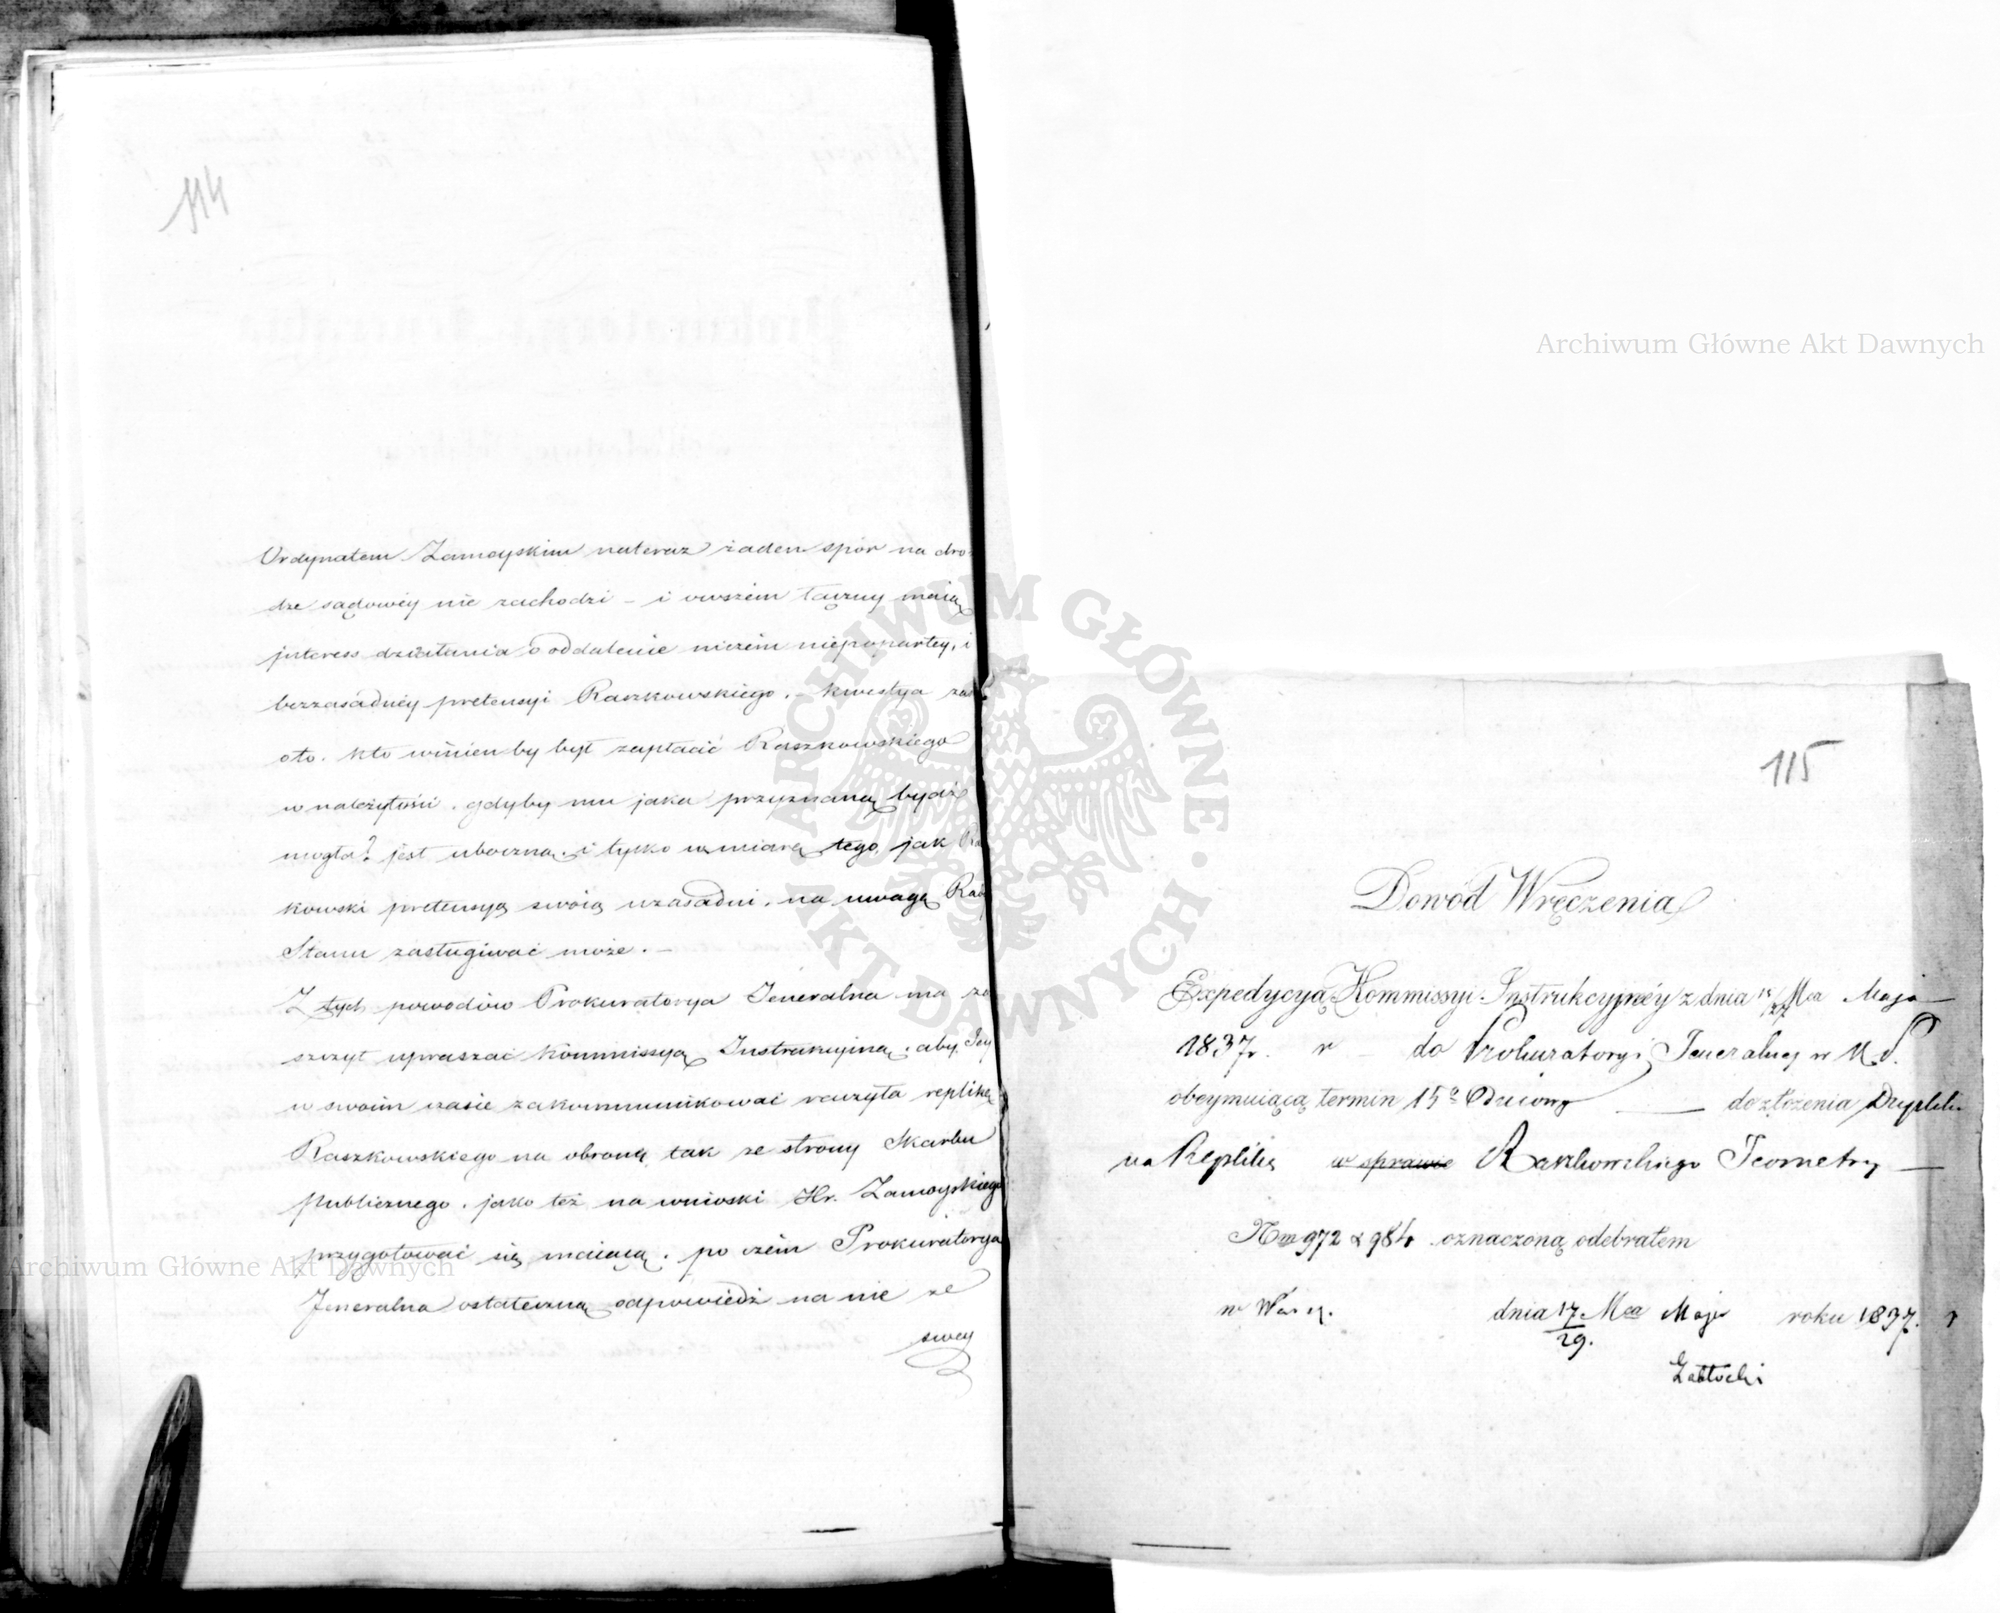 114
Ordynatem Zamoyskim nateraz żaden spór na dro-
dze sądowéy nie zachodzi – i owszem łączny maią
interess działania o oddalenie niczém niepopartey, i
bezzasadnéy pretensyi Raszkowskiego. – kwestya zaś
oto. kto winien by był zapłacić Raszkowskiego
w należytości. gdyby mu jaka przyznaną bydź
mogła? jest uboczną. i tylko w miarę tego, jak Ra
kowski pretensyą swoią uzasadni. na uwagę Rady
Stanu zasługiwać może. –
Z tych powodów Prokuratorya Jeneralna ma za
szczyt upraszać Kommissyą Instrukcyiną. aby Jey
w swoim czasie zakommunikować raczyła replikę
Raszkowskiego na obronę tak ze strony Skarbu
publicznego. jako też na wnioski Hr. Zamoyskiego
przygotować się maiącą. po czém Prokuratorya
Jeneralna ostateczną odpowiedź na nie ze
swey
115
Dowód Wręczenia
Expedycyą Kommissyi Instrukcyjnéy z dnia 15/27 Mca Maja
1837 r. r do Prokuratoryi Jeneralney w K. P.
obeymuiącą termin 15o Dniowy do złożenia Dupliki
na Replikę w sprawie Raszkowskiego Jeometry
Nro 972 & 984 oznaczoną odebrałem
w Warsz. dnia 17/29. Mca Maja roku 1837. r
Żabłocki
Archiwum Główne Akt Dawnych
Archiwum Główne Akt Dawnych
ARCHIWUM GŁÓWNE · AKT DAWNYCH ·